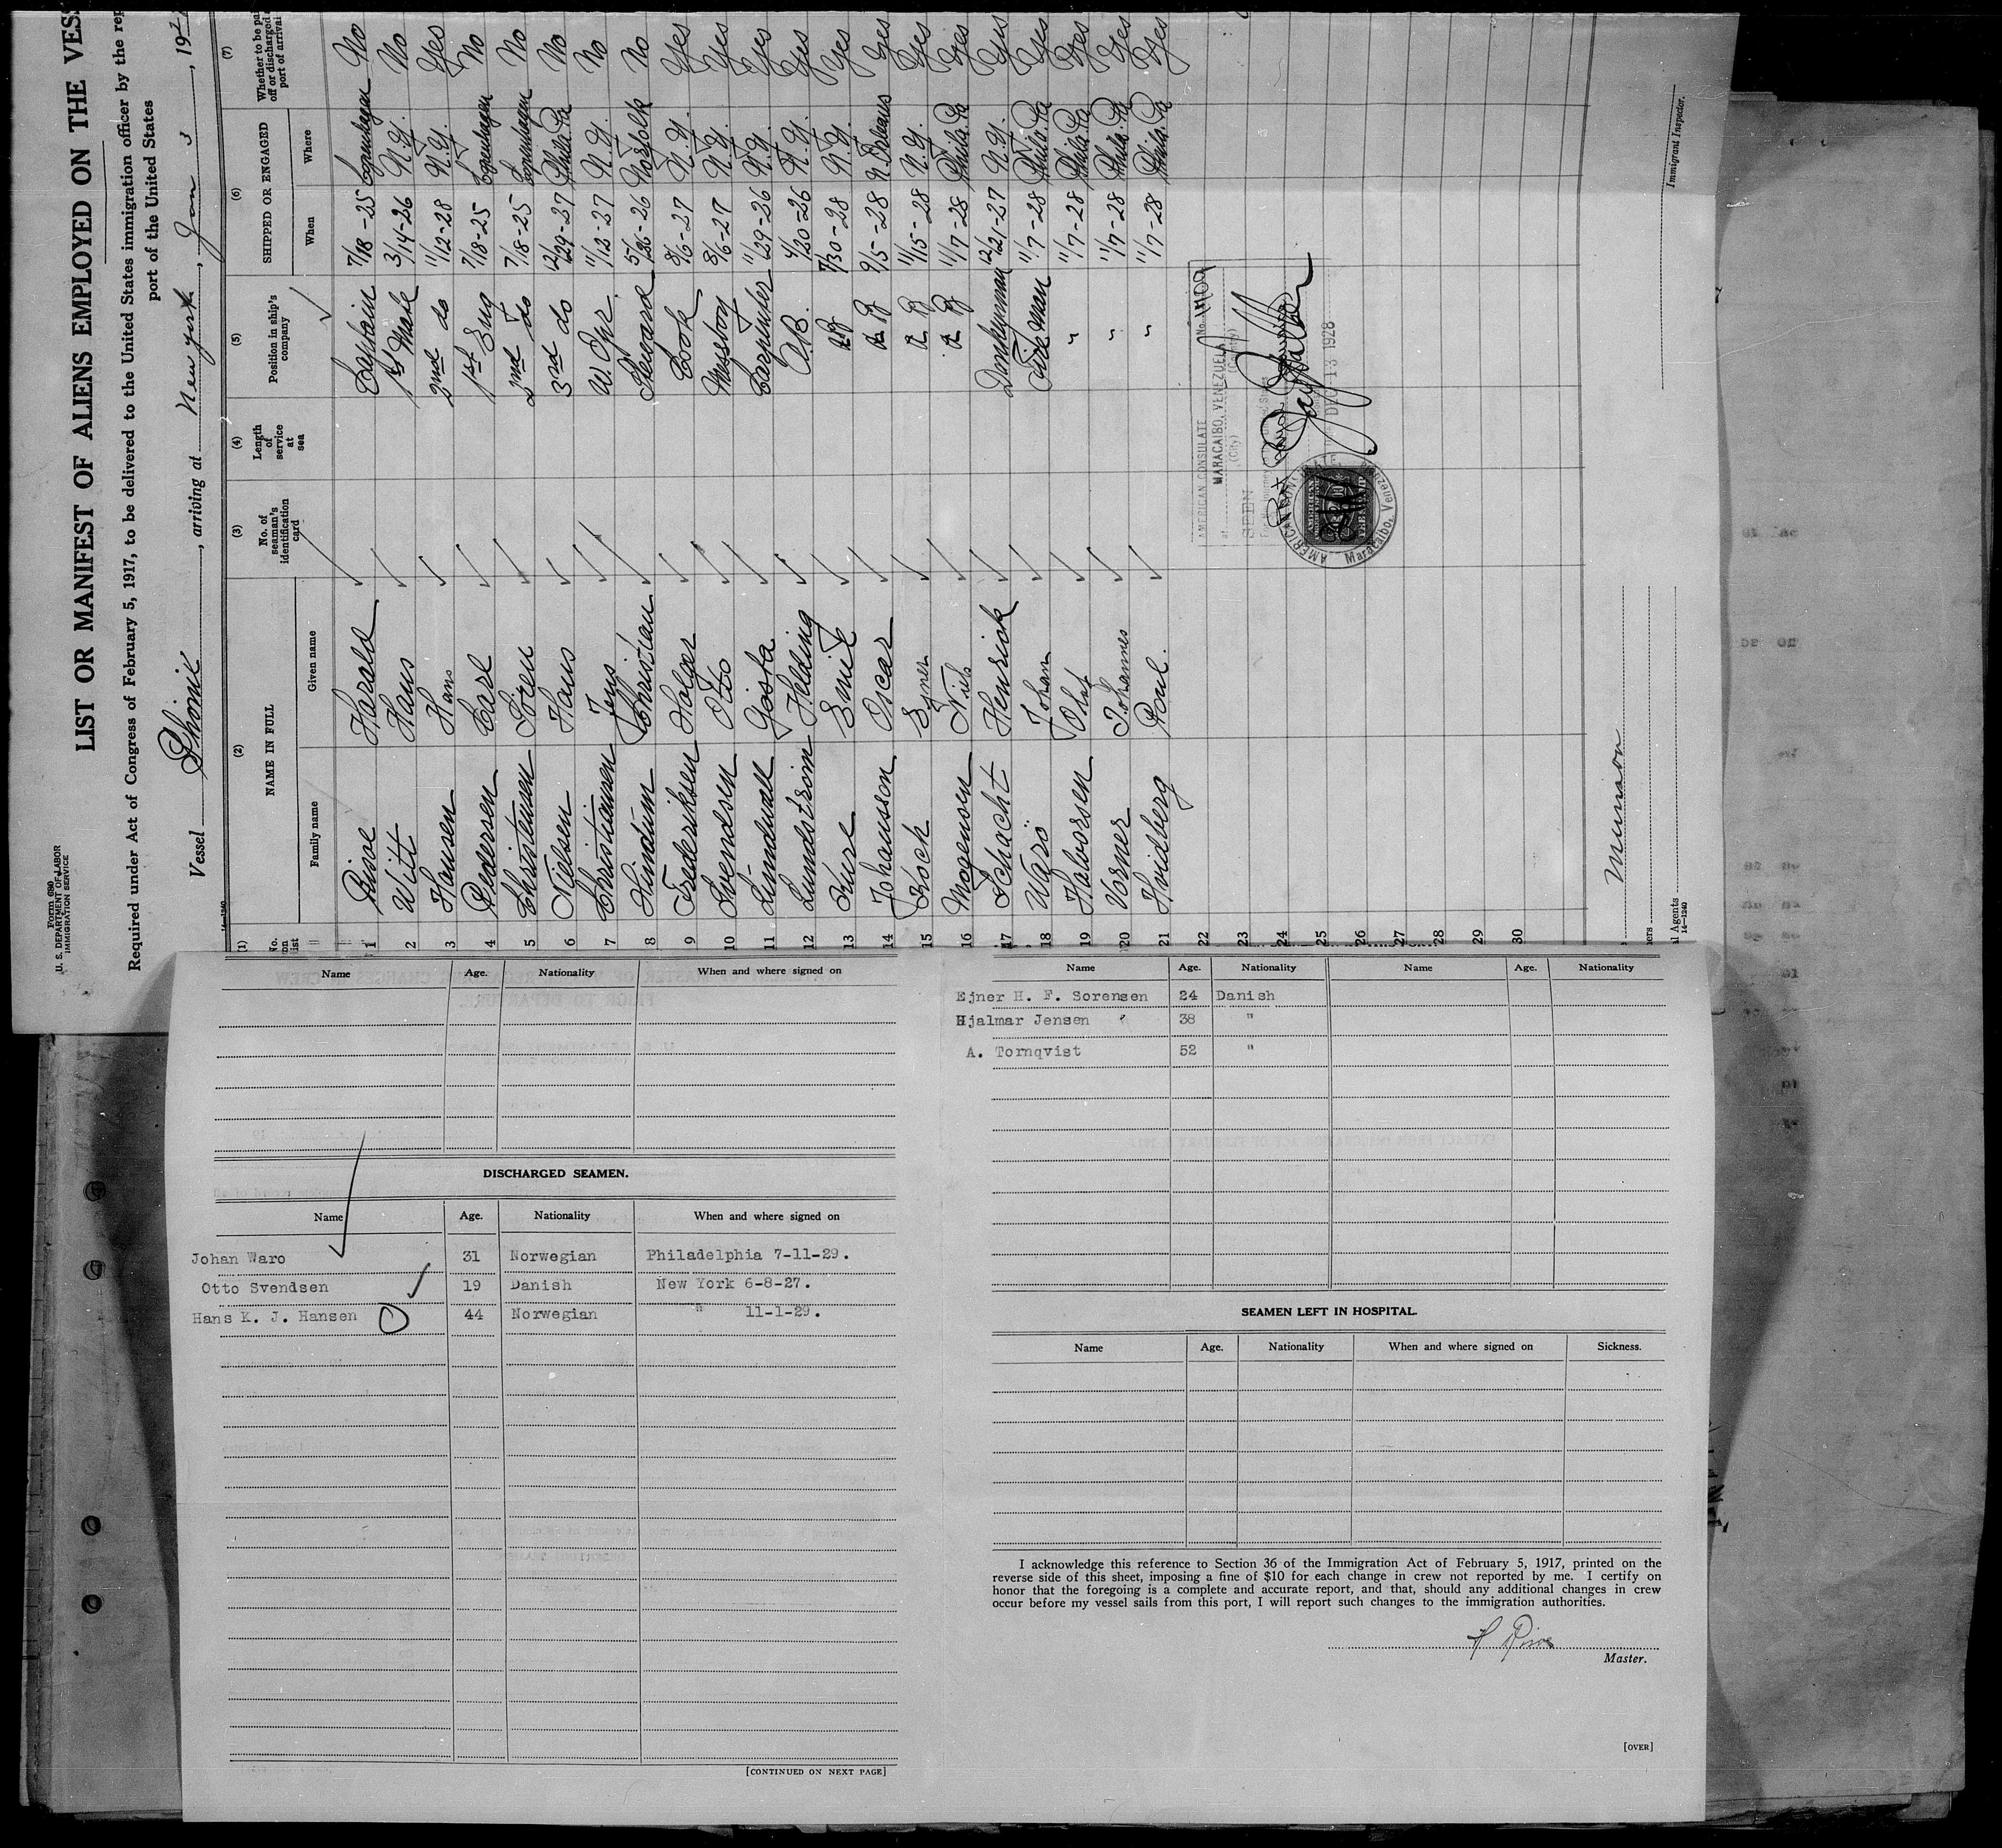 Form 680
U. S. DEPARTMENT OF LABOR
IMMIGRATION SERVICE
LIST OR MANIFEST OF ALIENS EMPLOYED ON THE VESS
Required under Act of Congress of February 5, 1917, to be delivered to the United States immigration officer by the rep
port of the United States
Vessel , arriving at New york, Jan 3, 192
(1) (2) (3) (4) (5) (6) (7)
No. on list NAME IN FULL No. of seaman's identification card Length of service at sea Position in ship's company SHIPPED OR ENGAGED Whether to be pai off or discharged a port of arrival
Family name Given name When Where
1 Harald Captain 7/18-25 Copenhagen No
2 Witt Hans 1st Mate 3/14-26 N.Y. No
3 Hansen Hans 2nd do 11/12-28 N.Y. Yes
4 Pedersen Carl 1st Eng 7/18-25 Copenhagen No
5 Christensen Sören 2nd do 7/18-25 Copenhagen No
6 Nielsen Hans 3rd do 12/29-27 Phila. Pa No
7 Christiansen Jens W. Opr. 11/12-27 N.Y. No
8 Christian Steward 5/26-26 Norfolk No
9 Frederiksen Holger Cook 8/6-27 N.Y. Yes
10 Svendsen Otto Messboy 8/6-27 N.Y. Yes
11 Lundwall Gösta Carpenter 11/29-26 N.Y. Yes
12 Lundström Helding A.B. 4/20-26 N.Y. Yes
13 Kure Emil 7/30-28 N.Y. Yes
14 Johansson Oscar 9/15-28 N. Orleans Yes
15 Koch Ejner 11/15-28 N.Y. Yes
16 Mogensen Niels 11/7-28 Phila. Pa Yes
17 Schacht Henrick Donkeyman 12/21-27 N.Y. Yes
18 Warö Johan Fireman 11/7-28 Phila. Pa Yes
19 Halvorsen Olaf " 11/7-28 Phila. Pa Yes
20 Vorner Johannes " 11/7-28 Phila. Pa Yes
21 Hvidberg Poul. " 11/7-28 Phila. Pa Yes
22
23
24
25
26
27
28
29
30
AMERICAN CONSULATE
at MARACAIBO, VENEZUELA
(City) (Country)
SEEN
DEC 13 1928
AMERICAN CONSULATE
Maracaibo, Venezuela
AMERICAN
FEE STAMP
Munson
Immigrant Inspector.
l Agents
14-1240
Name Age. Nationality When and where signed on
DISCHARGED SEAMEN.
Name Age. Nationality When and where signed on
Johan Waro 31 Norwegian Philadelphia 7-11-29.
Otto Svendsen 19 Danish New York 6-8-27.
Hans K. J. Hansen 44 Norwegian " 11-1-29.
[CONTINUED ON NEXT PAGE]
Name Age. Nationality Name Age. Nationality
Ejner H. F. Sorensen 24 Danish
Hjalmar Jensen 38 "
A. Tornqvist 52 "
SEAMEN LEFT IN HOSPITAL.
Name Age. Nationality When and where signed on Sickness.
I acknowledge this reference to Section 36 of the Immigration Act of February 5, 1917, printed on the
reverse side of this sheet, imposing a fine of $10 for each change in crew not reported by me. I certify on
honor that the foregoing is a complete and accurate report, and that, should any additional changes in crew
occur before my vessel sails from this port, I will report such changes to the immigration authorities.
Master.
[OVER]